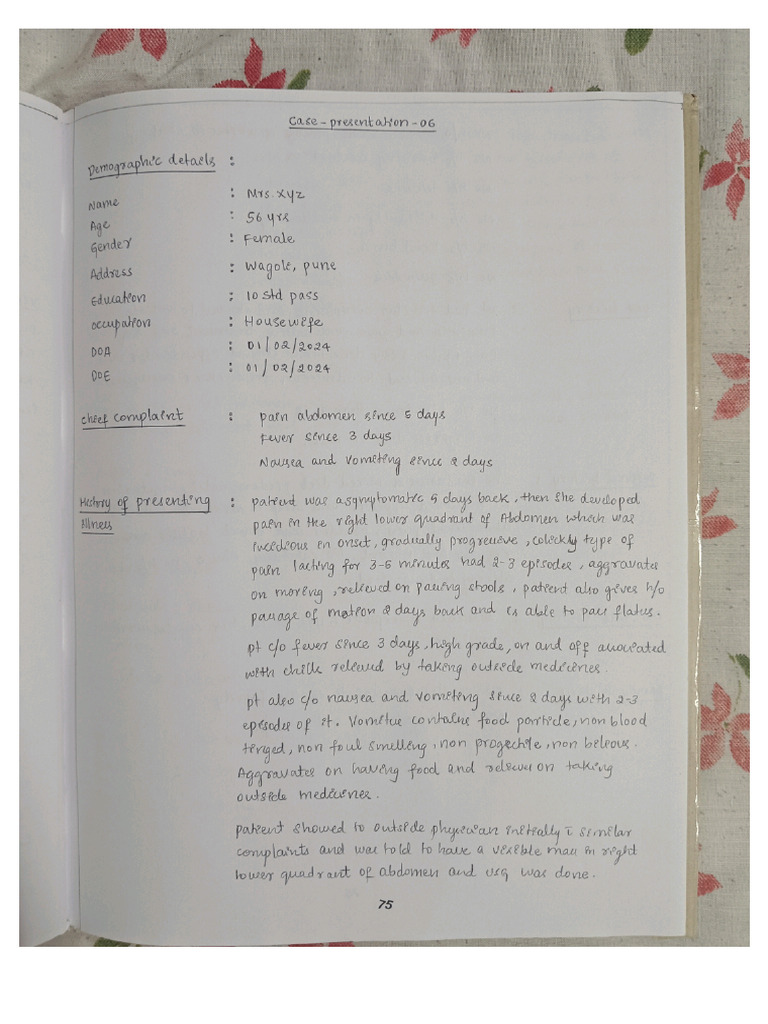 Case - presentation - 06
Demographic details :
Name : Mrs. xyz
Age : 56 yrs
Gender : Female
Address : Wagole, pune
Education : 10 std pass
Occupation : Housewife
DOA : 01/02/2024
DOE : 01/02/2024
Chief complaint : pain abdomen since 5 days
Fever since 3 days
Nausea and vomiting since 2 days
History of presenting : patient was asymptomatic 5 days back, then she developed
illness pain in the right lower quadrant of Abdomen which was
incidious in onset, gradually progressive, colickly type of
pain lasting for 3-5 minutes had 2-3 episodes, aggravates
on moving, relieved on passing stools, patient also gives h/o
passage of motion 2 days back and is able to pass flatus.
pt c/o fever since 3 days, high grade, on and off associated
with chills relieved by taking outside medicines.
pt also c/o nausea and vomiting since 2 days with 2-3
episodes of it. Vomitus contains food particle, non blood
tinged, non foul smelling, non progectile, non beleous.
Aggravates on having food and relieves on taking
outside medicines.
patient showed to outside physician initially c̄ similar
complaints and was told to have a visible mass in right
lower quadrant of abdomen and usg was done.
75